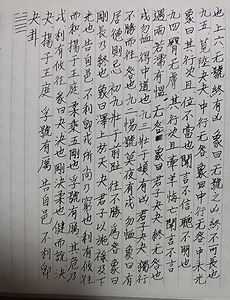 夬卦
夬 揚于王庭 孚號有厲 告自邑 不利即
戎 利有攸往 彖曰 夬決也 剛決柔也 健而說 決
而和 揚于王庭 柔乘五剛也 孚號有厲 其危乃
光也 告自邑 不利即戎 所尚乃窮也 利有攸往
剛長乃終也 象曰 澤上於天 夬 君子以施祿及下
居德則忌 初九 壯于前趾 往不勝為咎 象曰
不勝而往 咎也 九二 惕號 莫夜有戎 勿恤 象曰 有
戎勿恤 得中道也 九三 壯于頄 有凶 君子夬夬 獨行
遇雨若濡 有慍 无咎 象曰 君子夬夬 終无咎也
九四 臀无膚 其行次且 牽羊悔亡 聞言不信
象曰 其行次且 位不當也 聞言不信 聰不明也
九五 莧陸夬夬 中行无咎 象曰 中行无咎 中未光
也 上六 无號 終有凶 象曰 无號之凶 終不可長也